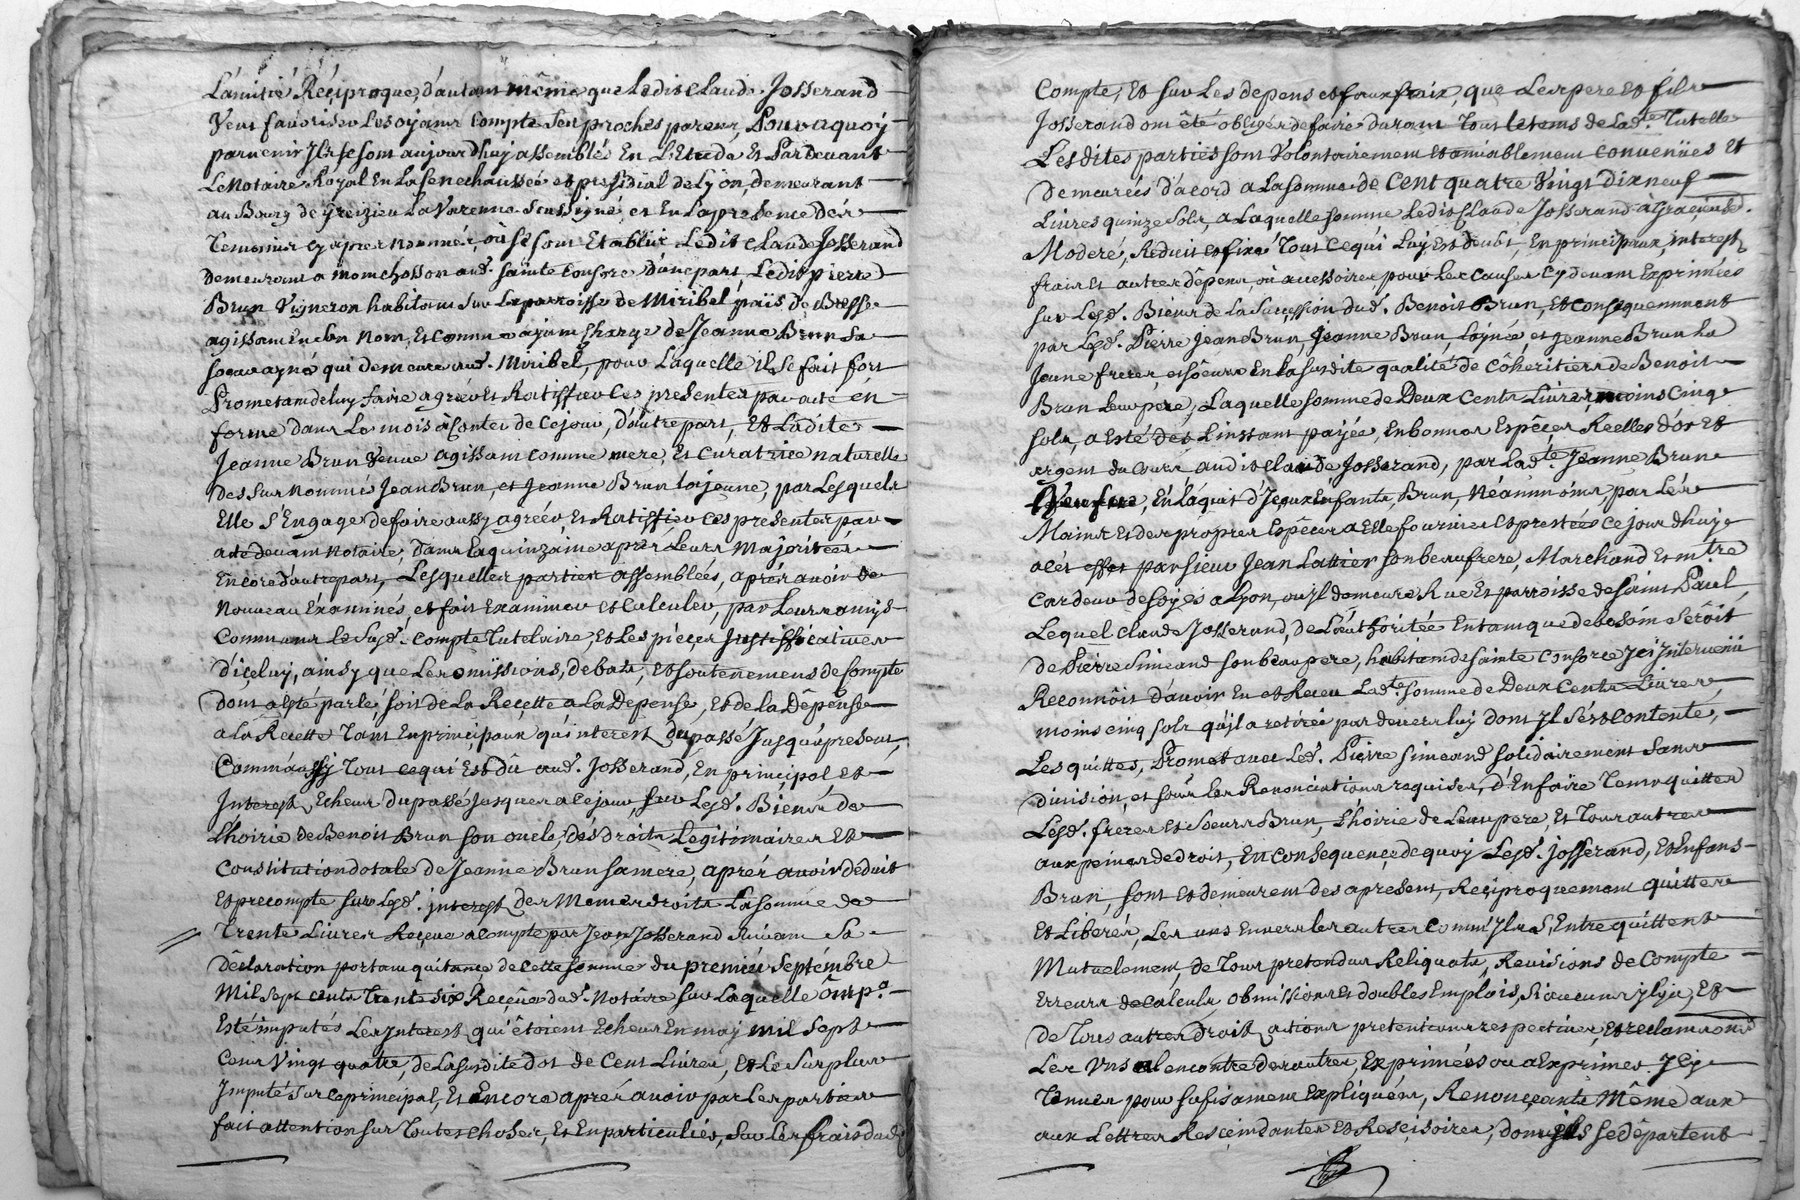 L'amitié Réçiproque, d'autant même que Ledit Claude Josserand
Veut favoriser Les oyants compte Ses proches parents, Pourquoy
parvenir Ils se sont aujourdhuy assemblés En L'Etude Et Pardevant
Le Notaire Royal En La senechaussée et presidial de Lyon, demeurant
au Bourg de Greizieu La Varenne soussigné, et En La presence des
Temoins cy aprés nommés, où se sont Etablis Ledit Claude Josserand
Demeurant a monchosson aud. Sainte Consorce d'une part, Ledit pierre
Brun Vigneron habitant Sur La parroisse de Miribel païs de Bresse
agissant En son Nom, Et comme ayant Charge de Jeanne Brun Sa
soeur aynée qui demeure aud. Miribel, pour Laquelle il se fait fort
Prometant de luy faire agréer Et Ratiffier Les presentes par acte en
forme dans Le mois à Conter de Cejour, d'autre part, Et Ladite
Jeanne Brun Veuve agissant comme mere, Et Curatrice naturelle
Des surnommés Jean Brun, et Jeanne Brun La jeune, par Lesquels
Elle S'Engage de faire aussy agréer Et Ratiffier Ces presentes par
acte devant Notaire, Dans La quinzaine aprés Leurs Majoritées
Encore d'autre part, Lesquelles parties assemblées, aprés avoir de
Nouveau Examinés, et fait Examiner et Calculer, par Leurs amys
Communs Le Susd. Compte Tutelaire, Et Les pieçes Justifficatives
D'içeluy, ainsy que Les omissions, debats, Et soutenemens de Compte
dont a Esté parlé, soit de La Reçette a La Depense, Et de La Dépense
a la Recette Tant En prinçipaux qu'interest du passé Jusqu'apresent,
Comm'aussy Tout ce qui Est dû aud. Josserand, En prinçipal et
Interest Echeus du passé Jusques a cejour, sur Lesd. Biens de
L'hoirie de Benoit Brun son oncle, des droits Legitimaires Et
Constitution dotale de Jeanne Brun sa mere, aprés avoir deduit
Et precompte sur Lesd. interest des Memes droits La somme de
Trente Livres Reçeue a Compte par Jean Josserand Suivant Sa
Déclaration portant quitance de Cette somme du premier Septembre
Mil sept cents trente six Reçeüe dud. Notaire sur Laquelle
Esté imputés Les Interest qui êtoient Echeus En may mil Sept
Cens Vingt quatre, de La susdite dot de Cent Livres, Et Le Surplus
Imputé sur Ce prinçipal, Et Encore aprés avoir par Les parties
fait attention sur Toutes choses, Et En particuliés, sur Les frais dud.
Compte, Et sur Les depens et faux fraix, que Les pere et fils
Josserand ont été obligés de faire durant Tout le tems de Lad.te Tutelle
Lesdites parties sont Volontairement Et amiablement convenües et
Demeurées d'acord a La somme de Cent quatre Vingt Dix neuf
Livres quinze sols, a Laquelle somme Ledit Claude Josserand a Graçieusé.
Moderé, Reduit Et fixé Tout ce qui Luy Est deubt, En prinçipaux, interest,
frais Et autres dépens où accessoires pour Les Causes cy devant Exprimées
sur Lesd. Biens de La Succession dud. Benoit Brun, Et consequemment
par Lesd. Pierre Jean Brun, Jeanne Brun, L'aynée et Jeanne Brun La
Jeune freres, et soeurs En La susdite qualité de Côheritiers de Benoit
Brun Leur pere, Laquelle somme de Deux Cents Livres, moins Cinq
sols, a Esté dés L'instant payée, En bonnes Espêces Reelles d'or Et
argent du Cours audit Claude Josserand, par Lad.te Jeanne Brun
Veufve, En L'aquit d'Içeux Enfants, Brun, Néanmoins, par Les
Mains Et des propres Espêces a Elle fournies Et prestées Ce jour dhuy
a Cet effet par sieur Jean Lattier son beaufrere, Marchand Et m.tre
Cardeur de soyes a Lyon, ou Il demeure Rüe Et parroisse de saint Paul
Lequel Claude Josserand, De L'outhoritée Entant que de besoin Seroit
de Pierre Simeand son beaupere, habitant de sainte Consorce Içi Intervenu
Reconnôit D'avoir Eu et Reçeu Lad.te somme de Deux Cents Livres,
moins cinq sols qu'il a retirée par devers luy dont Il s'est Contente,
Les quittes, Promet avec Led. Pierre Simeand solidairement Sans
division, et sous Les Renonçiations requises, d'En faire Tenir quittes
Lesd. freres Et Soeurs Brun, L'hoirie de Leur pere, Et Tous autres
aux peines de droit, En Consequençe de quoy Lesd. Josserand, Et Enfans
Brun, sont Et demeurent des apresent, Reçiproquement quittes
Et Liberés, Les uns Envers Les autres Comm'Ils S'Entre quittent
Mutuelement, de Tous pretendus Reliquats, Revisions de Compte
Erreurs de calculs, obmissions Et doubles Emplois, si aucuns y'ly a, Et
de Tous autres droits, actions pretentions respectives, Et reclamations
Les Uns al encontre des autres, Exprimées ou a Exprimer. Icy
Tenues pour sufisament Expliquées, Renonçants Même aux
aux Lettres Resçindantes Et Resçisoires, dont ils se départent